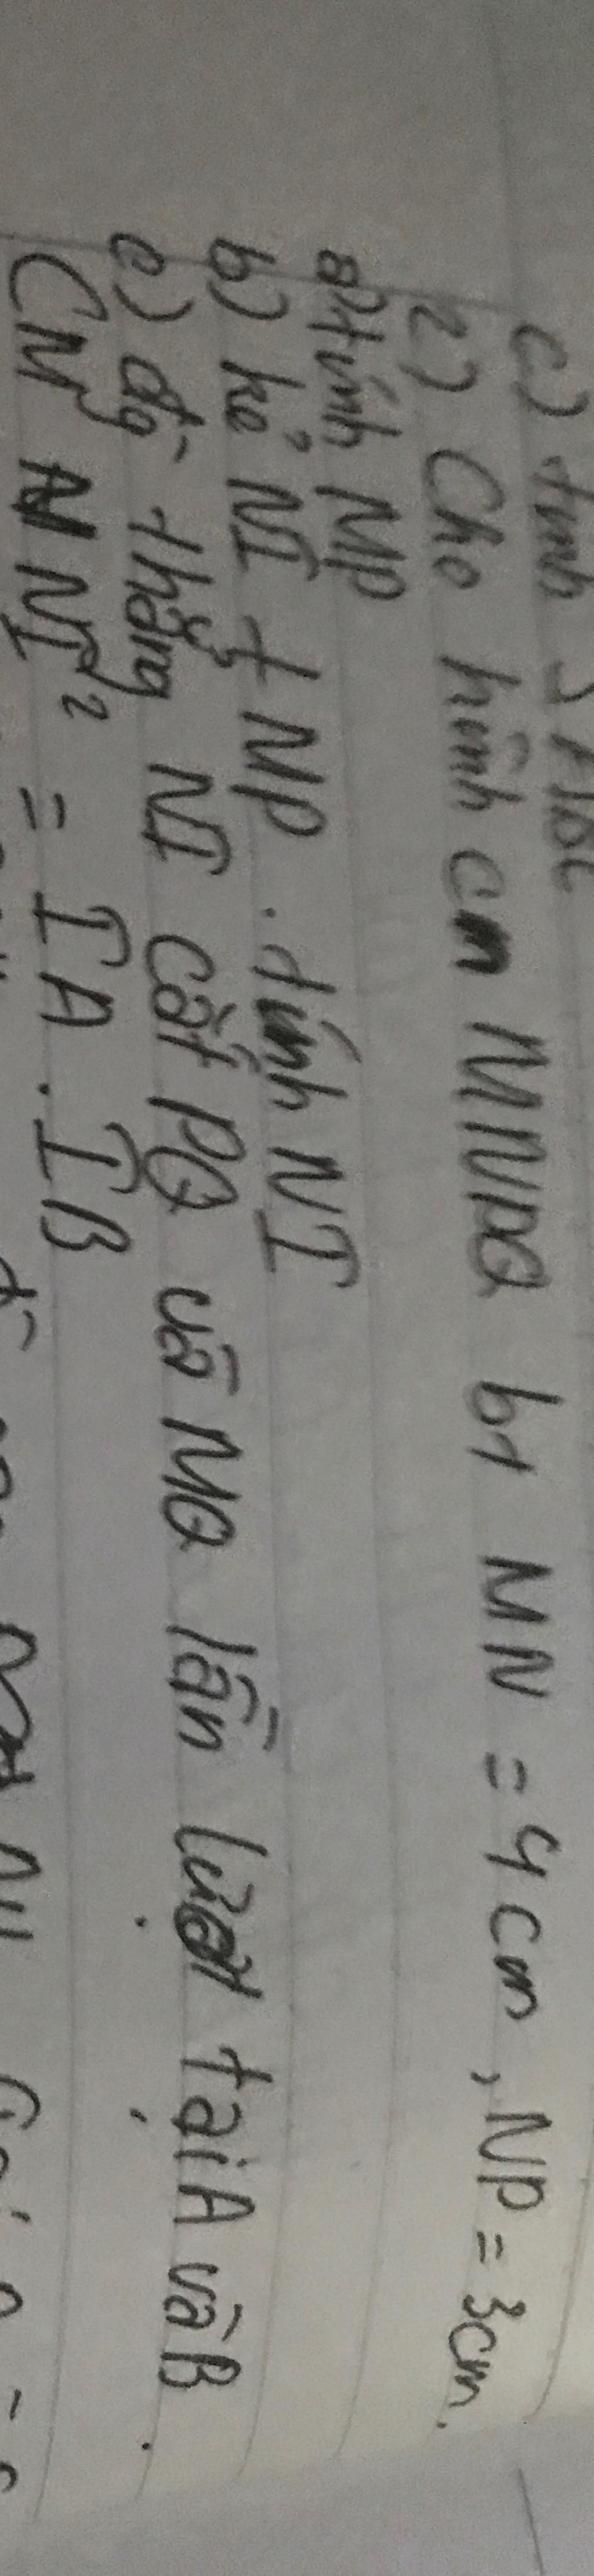 c) tính S ABC
2) Cho hình cn MNPQ bt MN = 4cm, NP = 3cm.
a) tính MP
b) kẻ NI ⊥ MP. tính NI
c) đg thẳng NI cắt PQ và MQ lần lượt tại A và B.
CM NI² = IA . IB